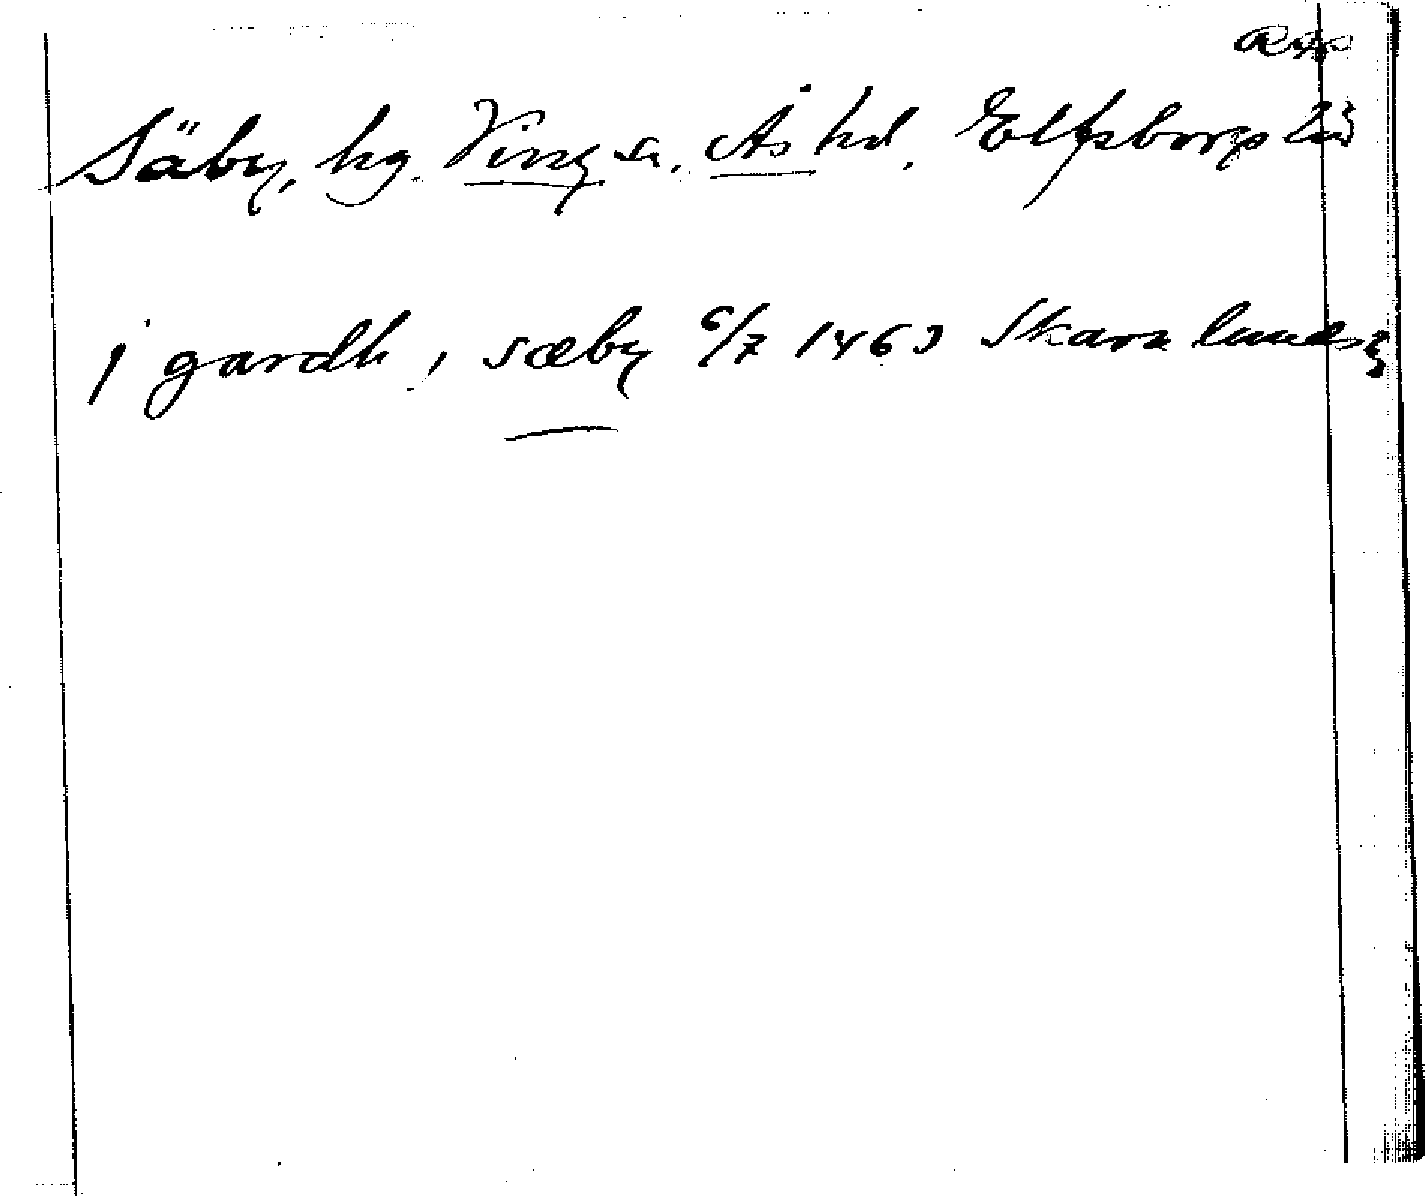 Säby, hg. Ving sn. Ås hd. Elfsborgs län
j gardh, i sæby 6/7 1463 Skara landsg